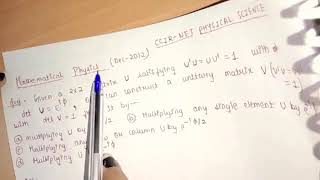 CSIR-NET PHYSICAL SCIENCE
Mathematical Physics (Dec-2012)
Given a 2x2 matrix U satisfying U†U = UU† = 1 with
det U = e^iφ, construct a unitary matrix V (V†V =
with det V = 1 by—
(a) multiplying U by e^-iφ/2 (b) Multiplying any single element U by e^-iφ/2
(c) Multiplying any or column U by e^-iφ/2
(d) Multiplying U by e^-iφ